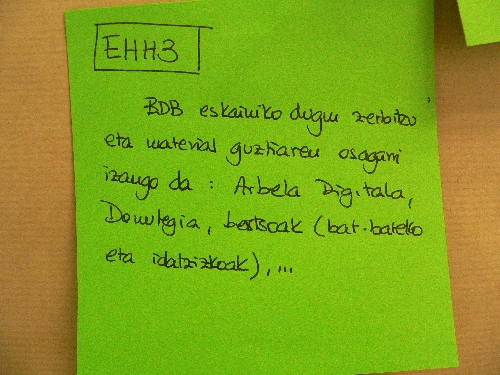 EHH3
BDB eskainiko dugun zerbitzu
eta material guztiaren osagarri
izango da : Arbela Digitala,
Donutegia, bertsoak (bat-bateko
eta idatzizkoak), ...